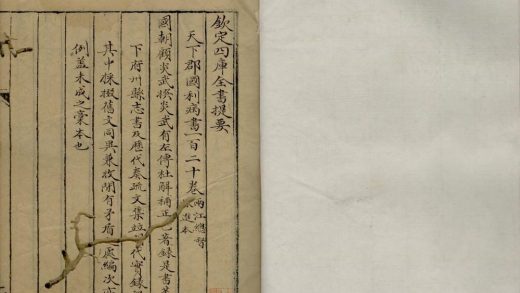 欽定四庫全書提要
天下郡國利病書一百二十卷兩江總督
進本
國朝顧炎武撰炎武有左傳杜解補正已著錄是書
下府州縣志書及歷代奏疏文集並代實錄
其中採掇舊文同異兼收間有矛盾處編次亦
例蓋未成之稾本也